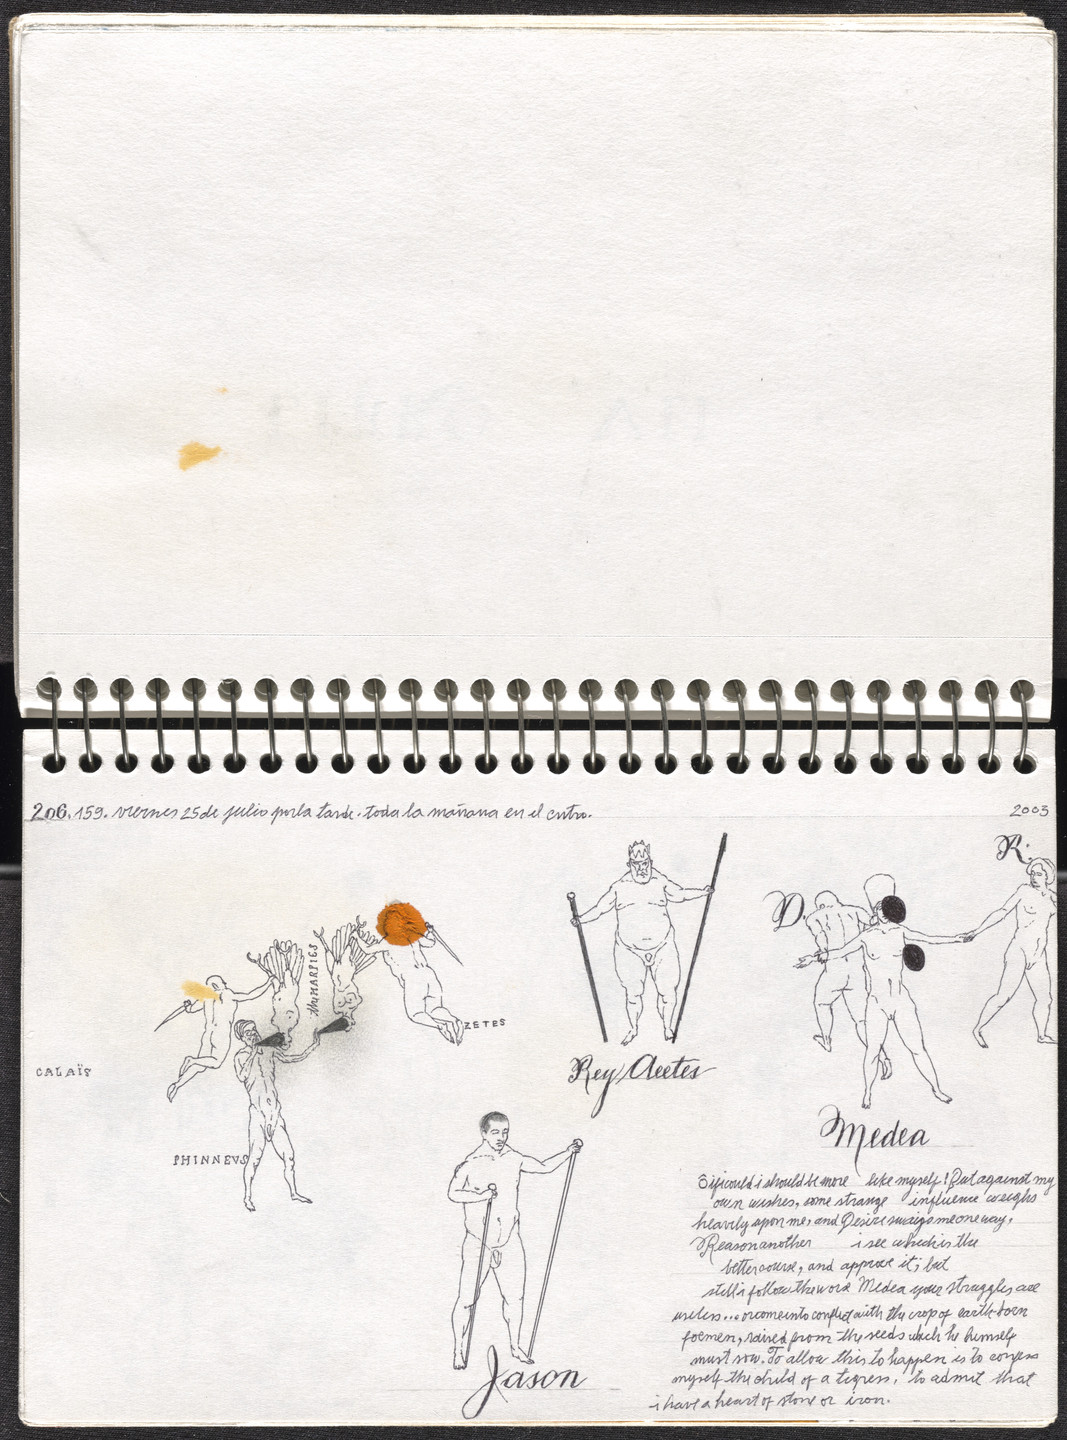 206. 159. viernes 25 de julio por la tarde. toda la mañana en el cntro.
2003
R.
D
the HARPIES
ZETES
CALAÏS
PHINNEUS
Rey Aeetes
Medea
Jason
if i could i should be more like myself! But against my
own wishes, some strange influence weighs
heavily upon me, and Desire sways me one way,
Reason another i see which is the
better course, and approve it; but
still i follow the worse Medea your struggles are
useless... or come into conflict with the crop of earth-born
foemen, raised from the seeds which he himself
must sow. To allow this to happen is to confess
myself the child of a tigress, to admit that
i have a heart of stone or iron.